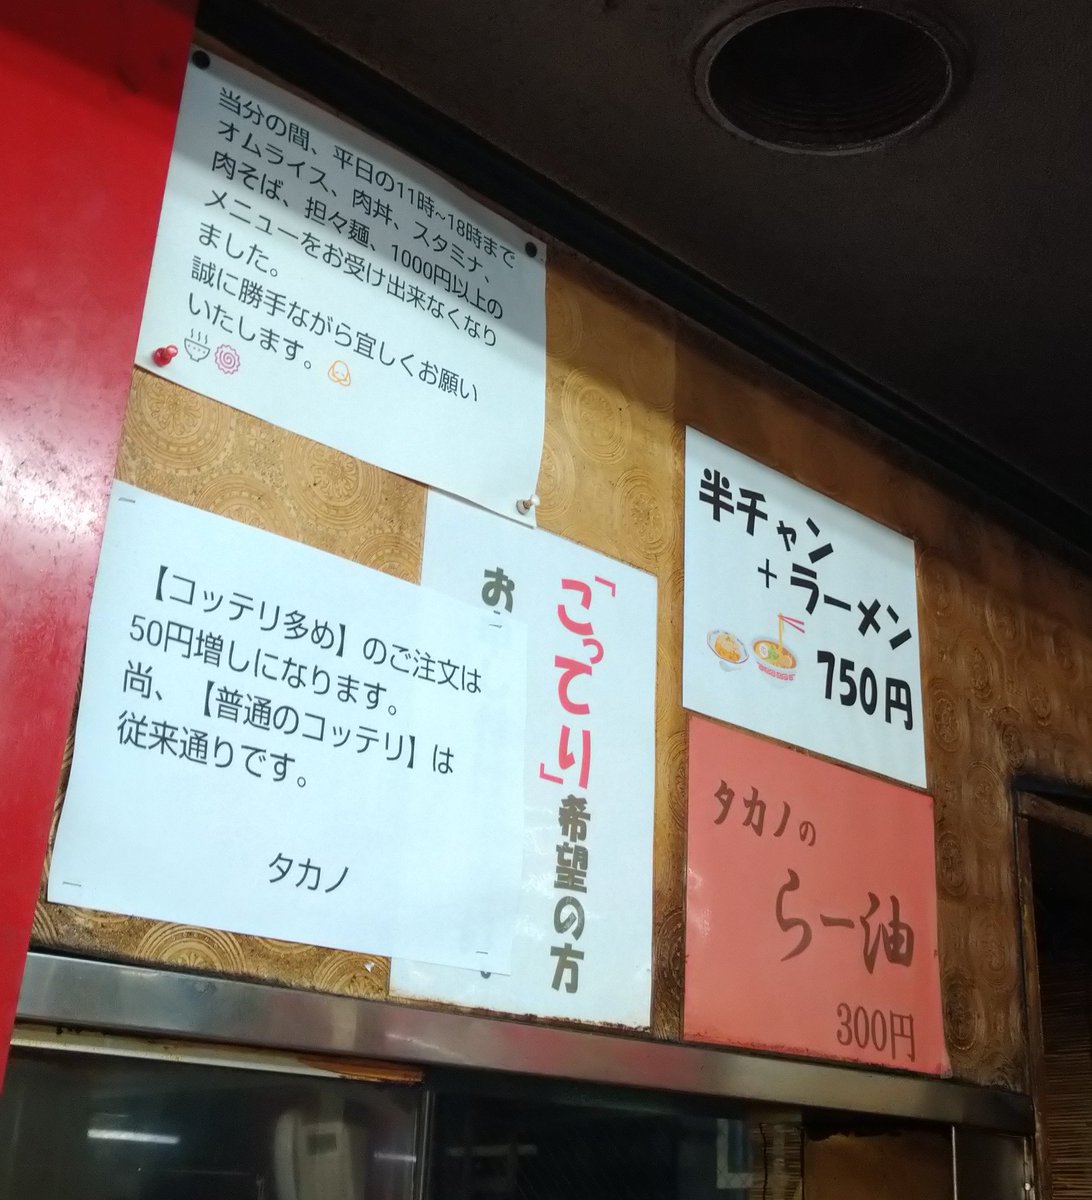 当分の間、平日の11時~18時まで
オムライス、肉丼、スタミナ、
肉そば、担々麺、1000円以上の
メニューをお受け出来なくなり
ました。
誠に勝手ながら宜しくお願い
いたします。
【コッテリ多め】のご注文は
50円増しになります。
尚、【普通のコッテリ】は
従来通りです。
タカノ
「こってり」希望の方
お
半チャン
+ラーメン
750円
タカノの
らー油
300円